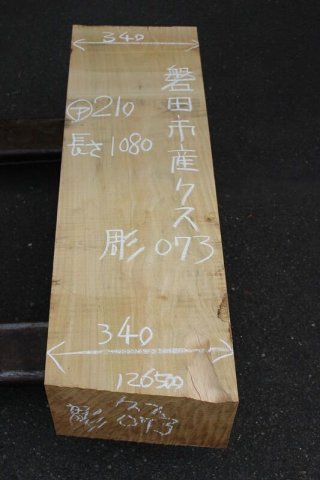 340
磐田市産クス
㋐210
長さ1080
彫 073
340
126500
彫 クス
073